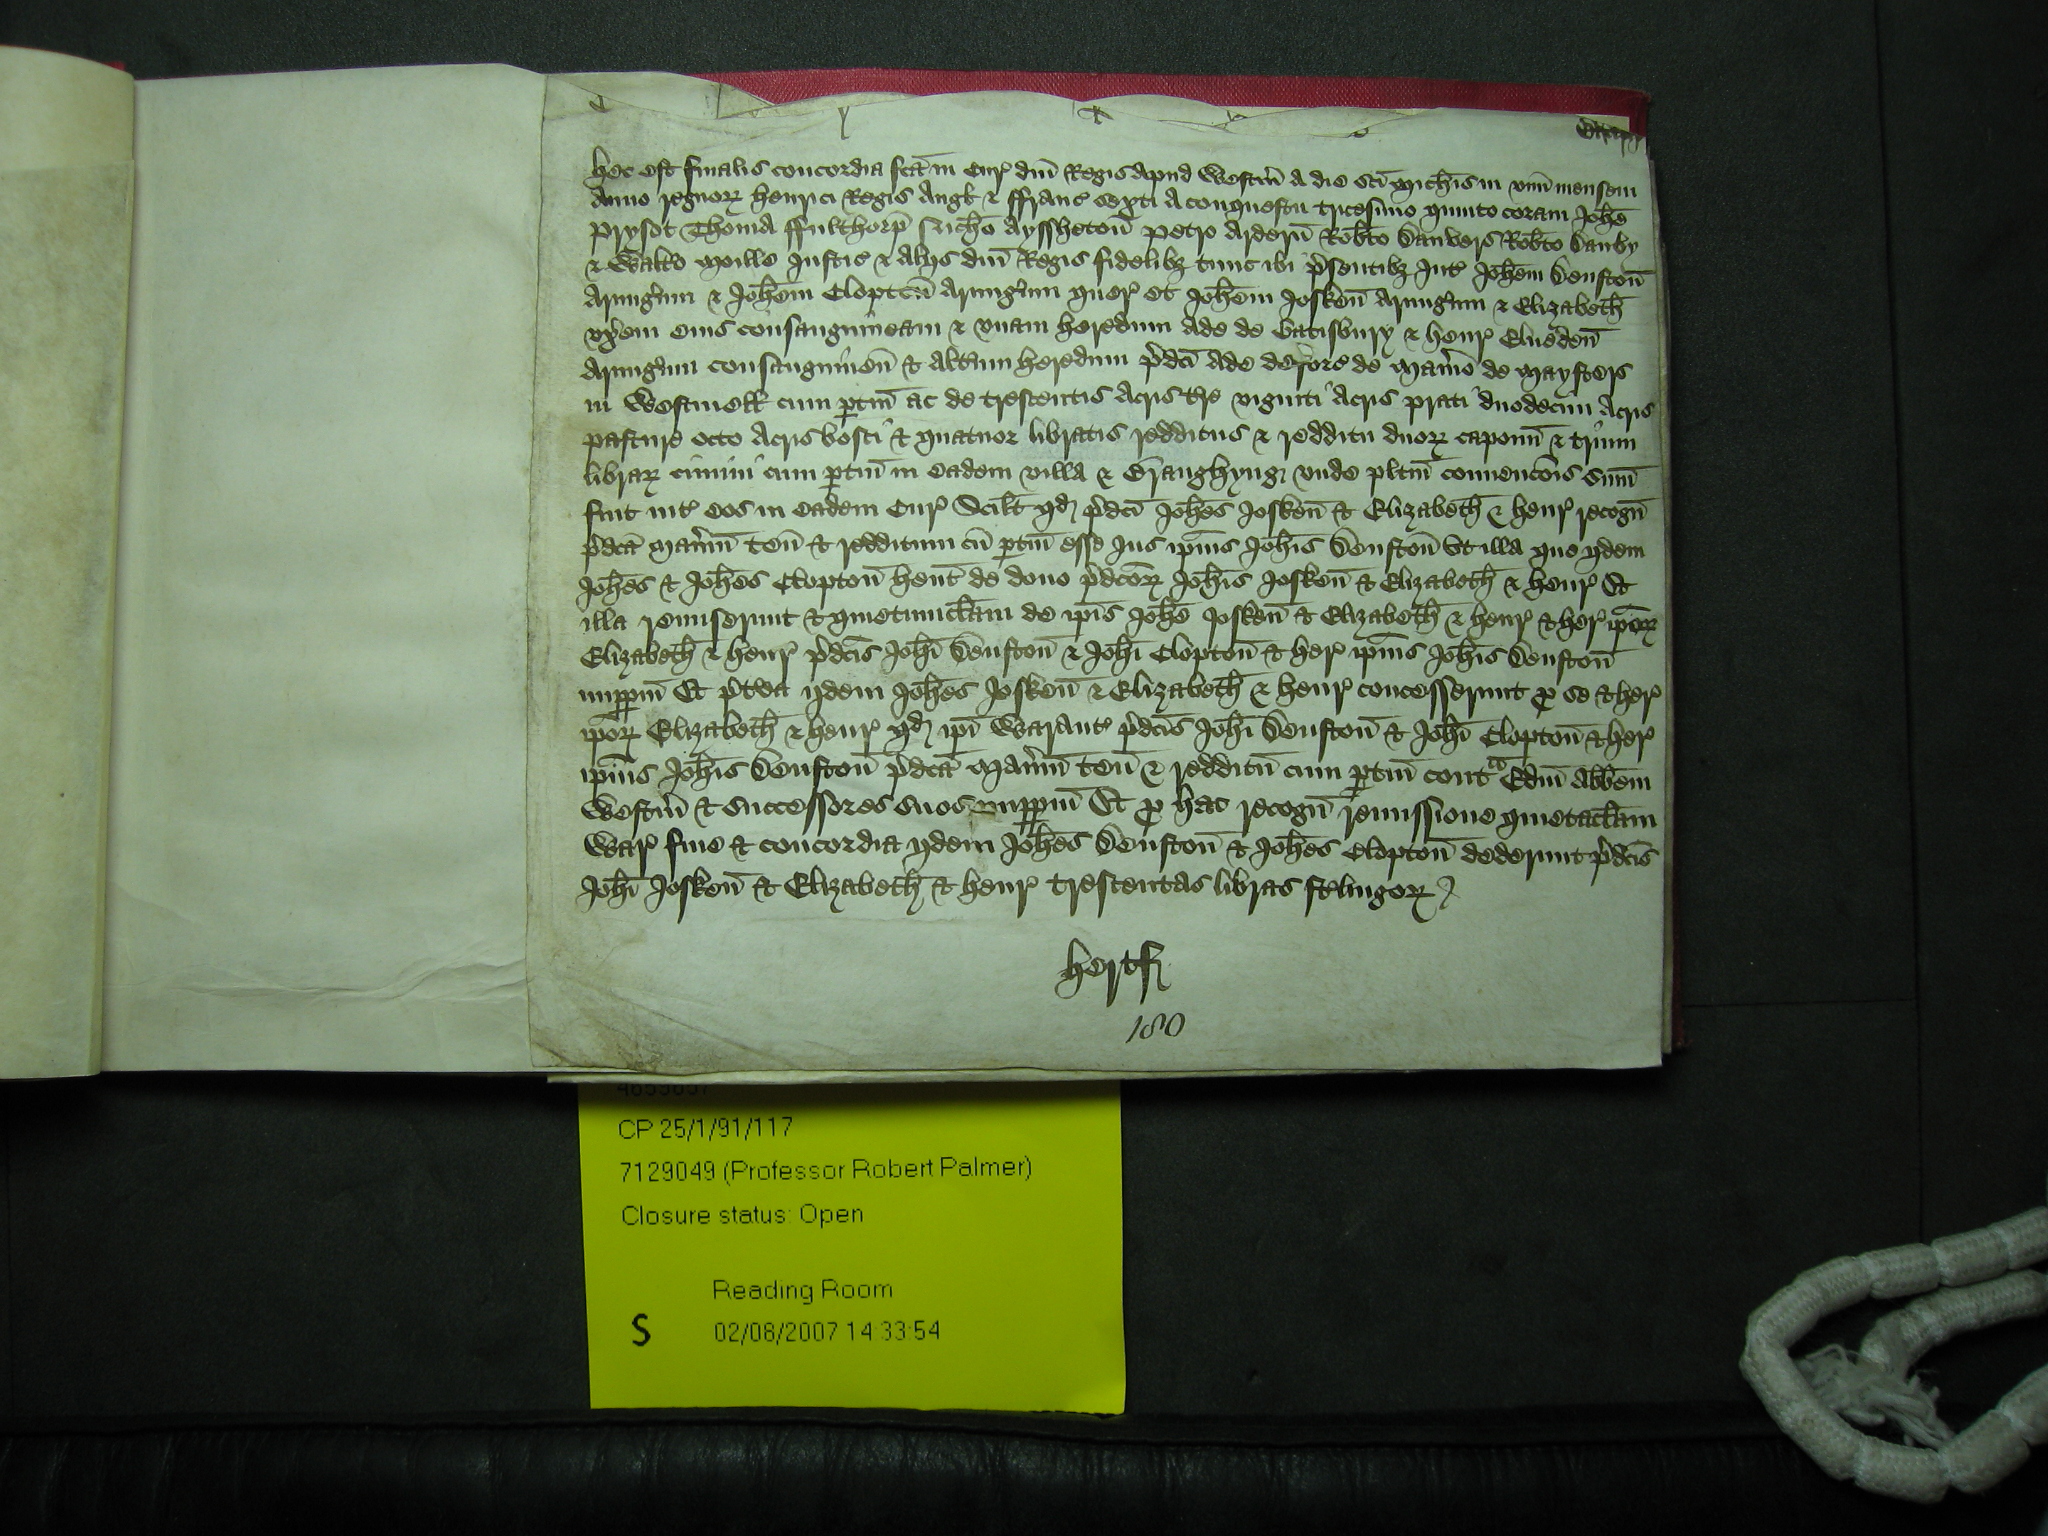 hec est finalis concordia fcā in Cur' dm̄ Regis apud Westm̄ a die scī Mich̄is in vnū mensem
Anno regnor' henrici Regis Angł & ffranc' sexti a conquestu tricesimo quinto coram Joh̄e
Prysot Thoma ffulthorp' Nich̄o Ayssheton̄ Petro Ardern̄ Rob̄to Danvers Rob̄to Danby
& Walt̄o Moille Justic' & alijs dm̄ Regis fidelibȝ tunc ibi p'sentibȝ Int' Joh̄em Denston̄
Armig'um & Joh̄em Clopton̄ Armig'um quer' et Joh̄em Josken̄ Armig'um & Elizabeth̄
vx'em eius consanguineam & vnam heredum Ade de Gatisbury & henr' Elueden̄
Armig'um consanguineū & alt'um heredum p'dc̄i Ade deforc' de Man'io de Maysters
in Westmełł cum ptin̄ ac de trescentis acris t're viginti acris prati duodecim acris
pasture octo acris bosci & quatuor libratis redditus & redditu duor' caponū & trium
librar' cimini cum ptin̄ in eadem villa & Braughyng' vnde plītm̄ conuenc̄ois sum̄
fuit int' eos in eadem Cur' Scilt qd' p'dc̄i Joh̄es Josken̄ & Elizabeth̄ & henr' recogn̄
p'dc̄a Man'iū ten̄ & redditum cū ptin̄ esse Jus ip̄ius Joh̄is Denston̄ Vt illa que ijdem
Joh̄es & Joh̄es Clopton̄ hent̄ de dono p'dc̄or' Joh̄is Josken̄ & Elizabeth̄ & henr' Et
illa remiserunt & quietumcłam̄ de ip̄is Joh̄e Josken̄ & Elizabeth̄ & henr' & her' ip̄or'
Elizabeth̄ & henr' p'dc̄is Joh̄i Denston̄ & Joh̄i Clopton̄ & her' ip̄ius Joh̄is Denston̄
imppm̄ Et p't'ea ijdem Joh̄es Josken̄ & Elizabeth̄ & henr' concesserunt p se & her'
ip̄or' Elizabeth̄ & henr' qd' ip̄i Warant' p'dc̄is Joh̄i Denston̄ & Joh̄i Clopton̄ & her'
ip̄ius Joh̄is Denston̄ p'dc̄a Man'iū ten̄ & redditū cum ptin̄ cont^a Edm̄ Abb̄em
Westm̄ & successores suos imppm̄ Et p hac recogn̄ remissione quietaclam̄
War' fine & concordia ijdem Joh̄es Denston̄ & Joh̄es Clopton̄ dederunt p'dc̄is
Joh̄i Josken̄ & Elizabeth̄ & henr' trescentas libras st'lingor'
hertf'
180
CP 25/1/91/117
7129049 (Professor Robert Palmer)
Closure status: Open
Reading Room
S 02/08/2007 14:33:54